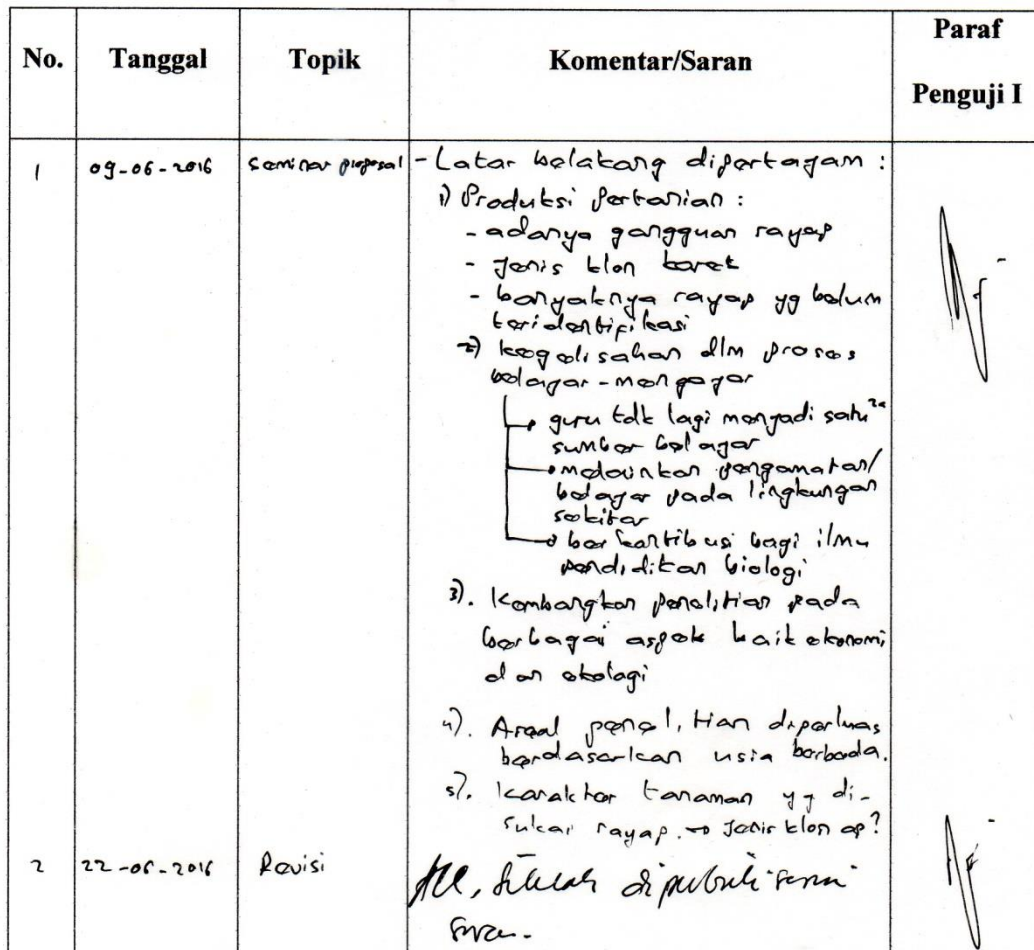 No. Tanggal Topik Komentar/Saran Paraf
Penguji I
1 09-06-2016 seminar proposal - Latar belakang dipertajam :
1) Produksi Pertanian :
- adanya gangguan rayap
- Jenis klon karet
- banyaknya rayap yg belum
teridentifikasi
2) kegelisahan dlm proses
belajar-mengajar
guru tdk lagi menjadi satu²nya
sumber belajar
melainkan pengamatan/
belajar pada lingkungan
sekitar
berkontribusi bagi ilmu
pendidikan biologi
3). Kembangkan penelitian pada
berbagai aspek baik ekonomi
dan ekologi
4). Areal penelitian diperluas
berdasarkan usia berbeda.
5). Karakter tanaman yg di-
sukai rayap. → Jenis klon ap?
2 22-06-2016 Revisi Acc, setelah diperbaiki sesuai
saran.